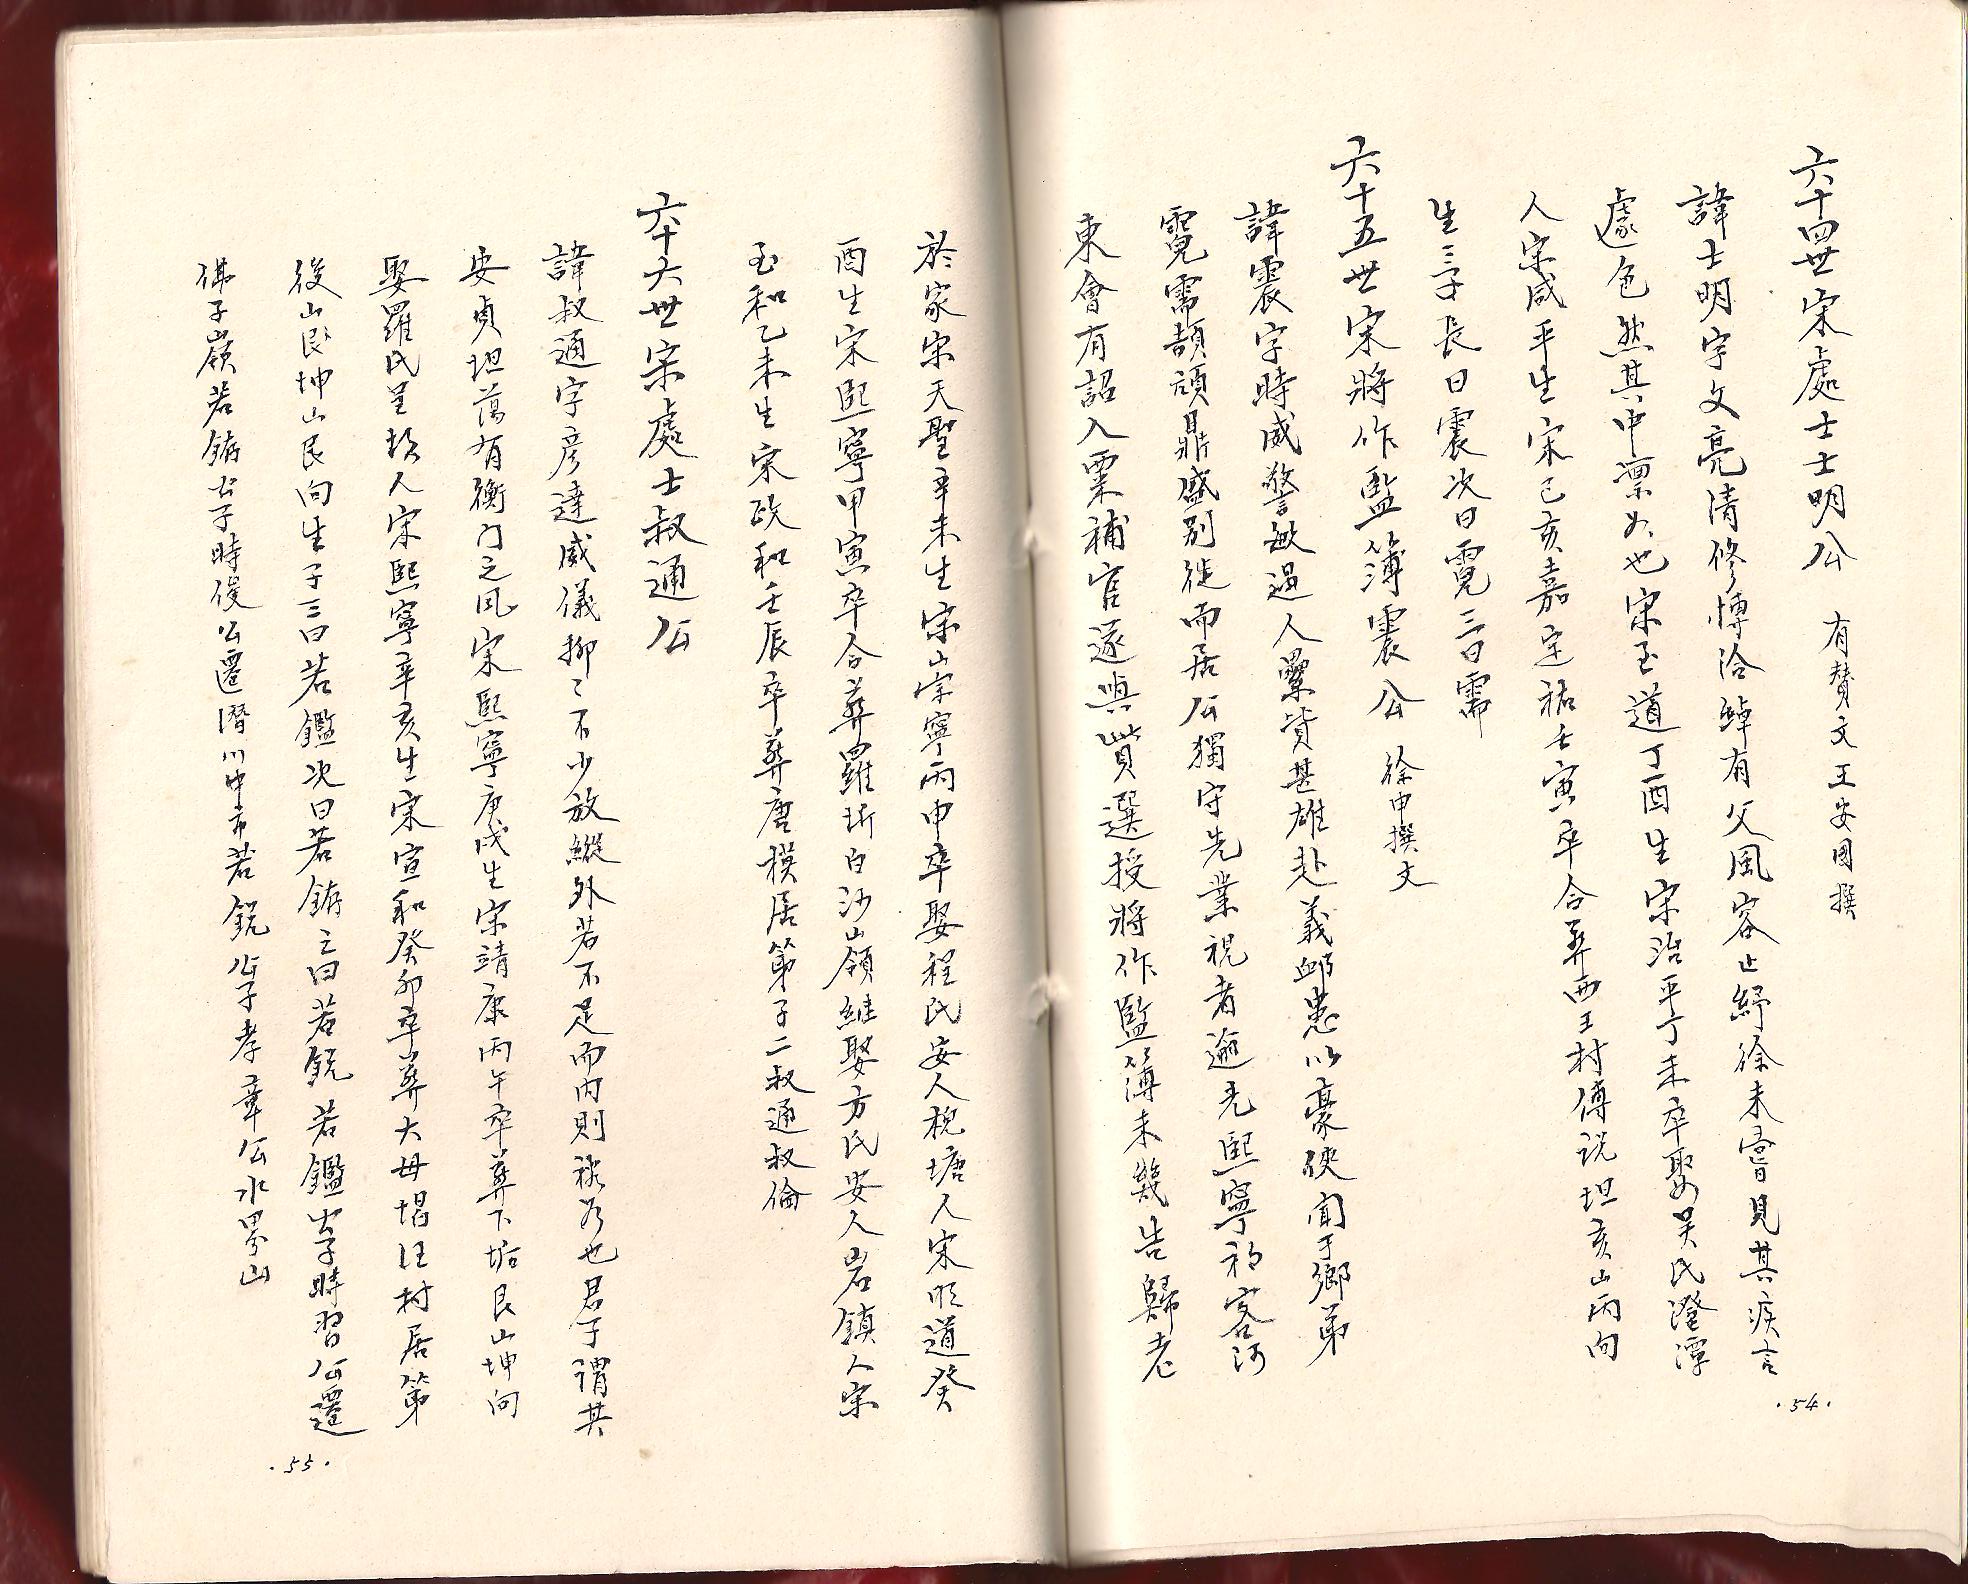 六十四世宋處士士明公 有贊文王安國撰
諱士明字文亮清修博洽綽有父風容止紓徐未嘗見其疾言
遽色然其中凜如也宋至道丁酉生宋治平丁未卒娶吳氏澄潭
人宋咸平生宋己亥嘉定祐壬寅卒合葬西王村傅説坦亥山丙向
生三子長曰震次曰霓三曰需
六十五世宋將作監簿震公 徐申撰文
諱震字時威警敏過人纍貲甚雄赴義邮患以豪俠聞于鄉弟
霓需頡頏鼎盛別徙而居公獨守先業視者逾光熙寧初客河
東會有詔入粟補官遂與貲選授將作監簿未幾告歸老
·54·
於家宋天聖辛未生宋崇寧丙申卒娶程氏安人棁塘人宋明道癸
酉生宋熙寧甲寅卒合葬羅圻白沙山嶺繼娶方氏安人岩鎮人宋
至和乙未生宋政和壬辰卒葬唐模居第子二叔通叔倫
六十六世宋處士叔通公
諱叔通字彥達威儀抑々不少放縱外若不足而内則裕如也君子謂其
安貞坦蕩有衡門之風宋熙寧庚戌生宋靖康丙午卒葬下垢艮山坤向
娶羅氏呈坎人宋熙寧辛亥生宋宣和癸卯卒葬大母堨汪村居第
後山艮坤山艮向生子三曰若鑑次曰若錥三曰若銳若鑑公子時習公遷
佛子嶺若錥公子時俊公遷潛川中市若銳公子孝章公水界山
·55·